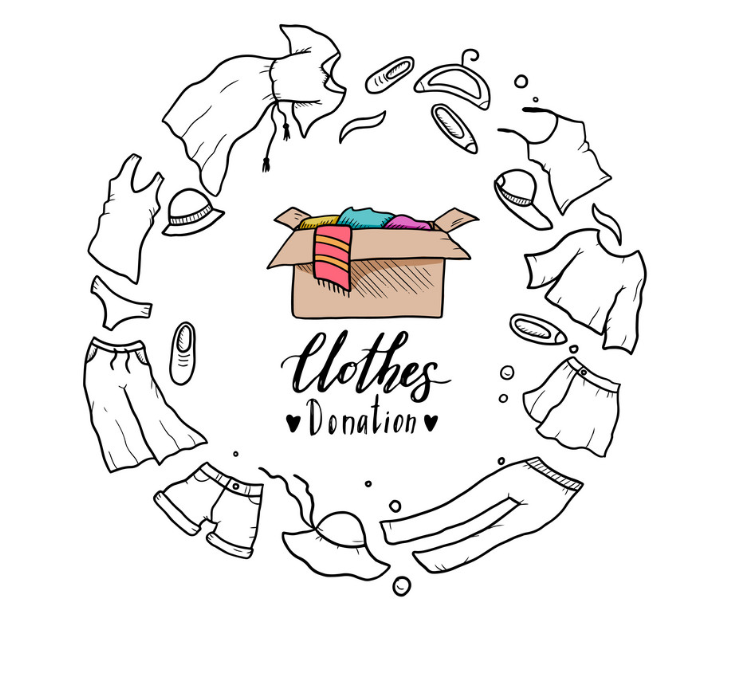 Clothes
♥Donation♥